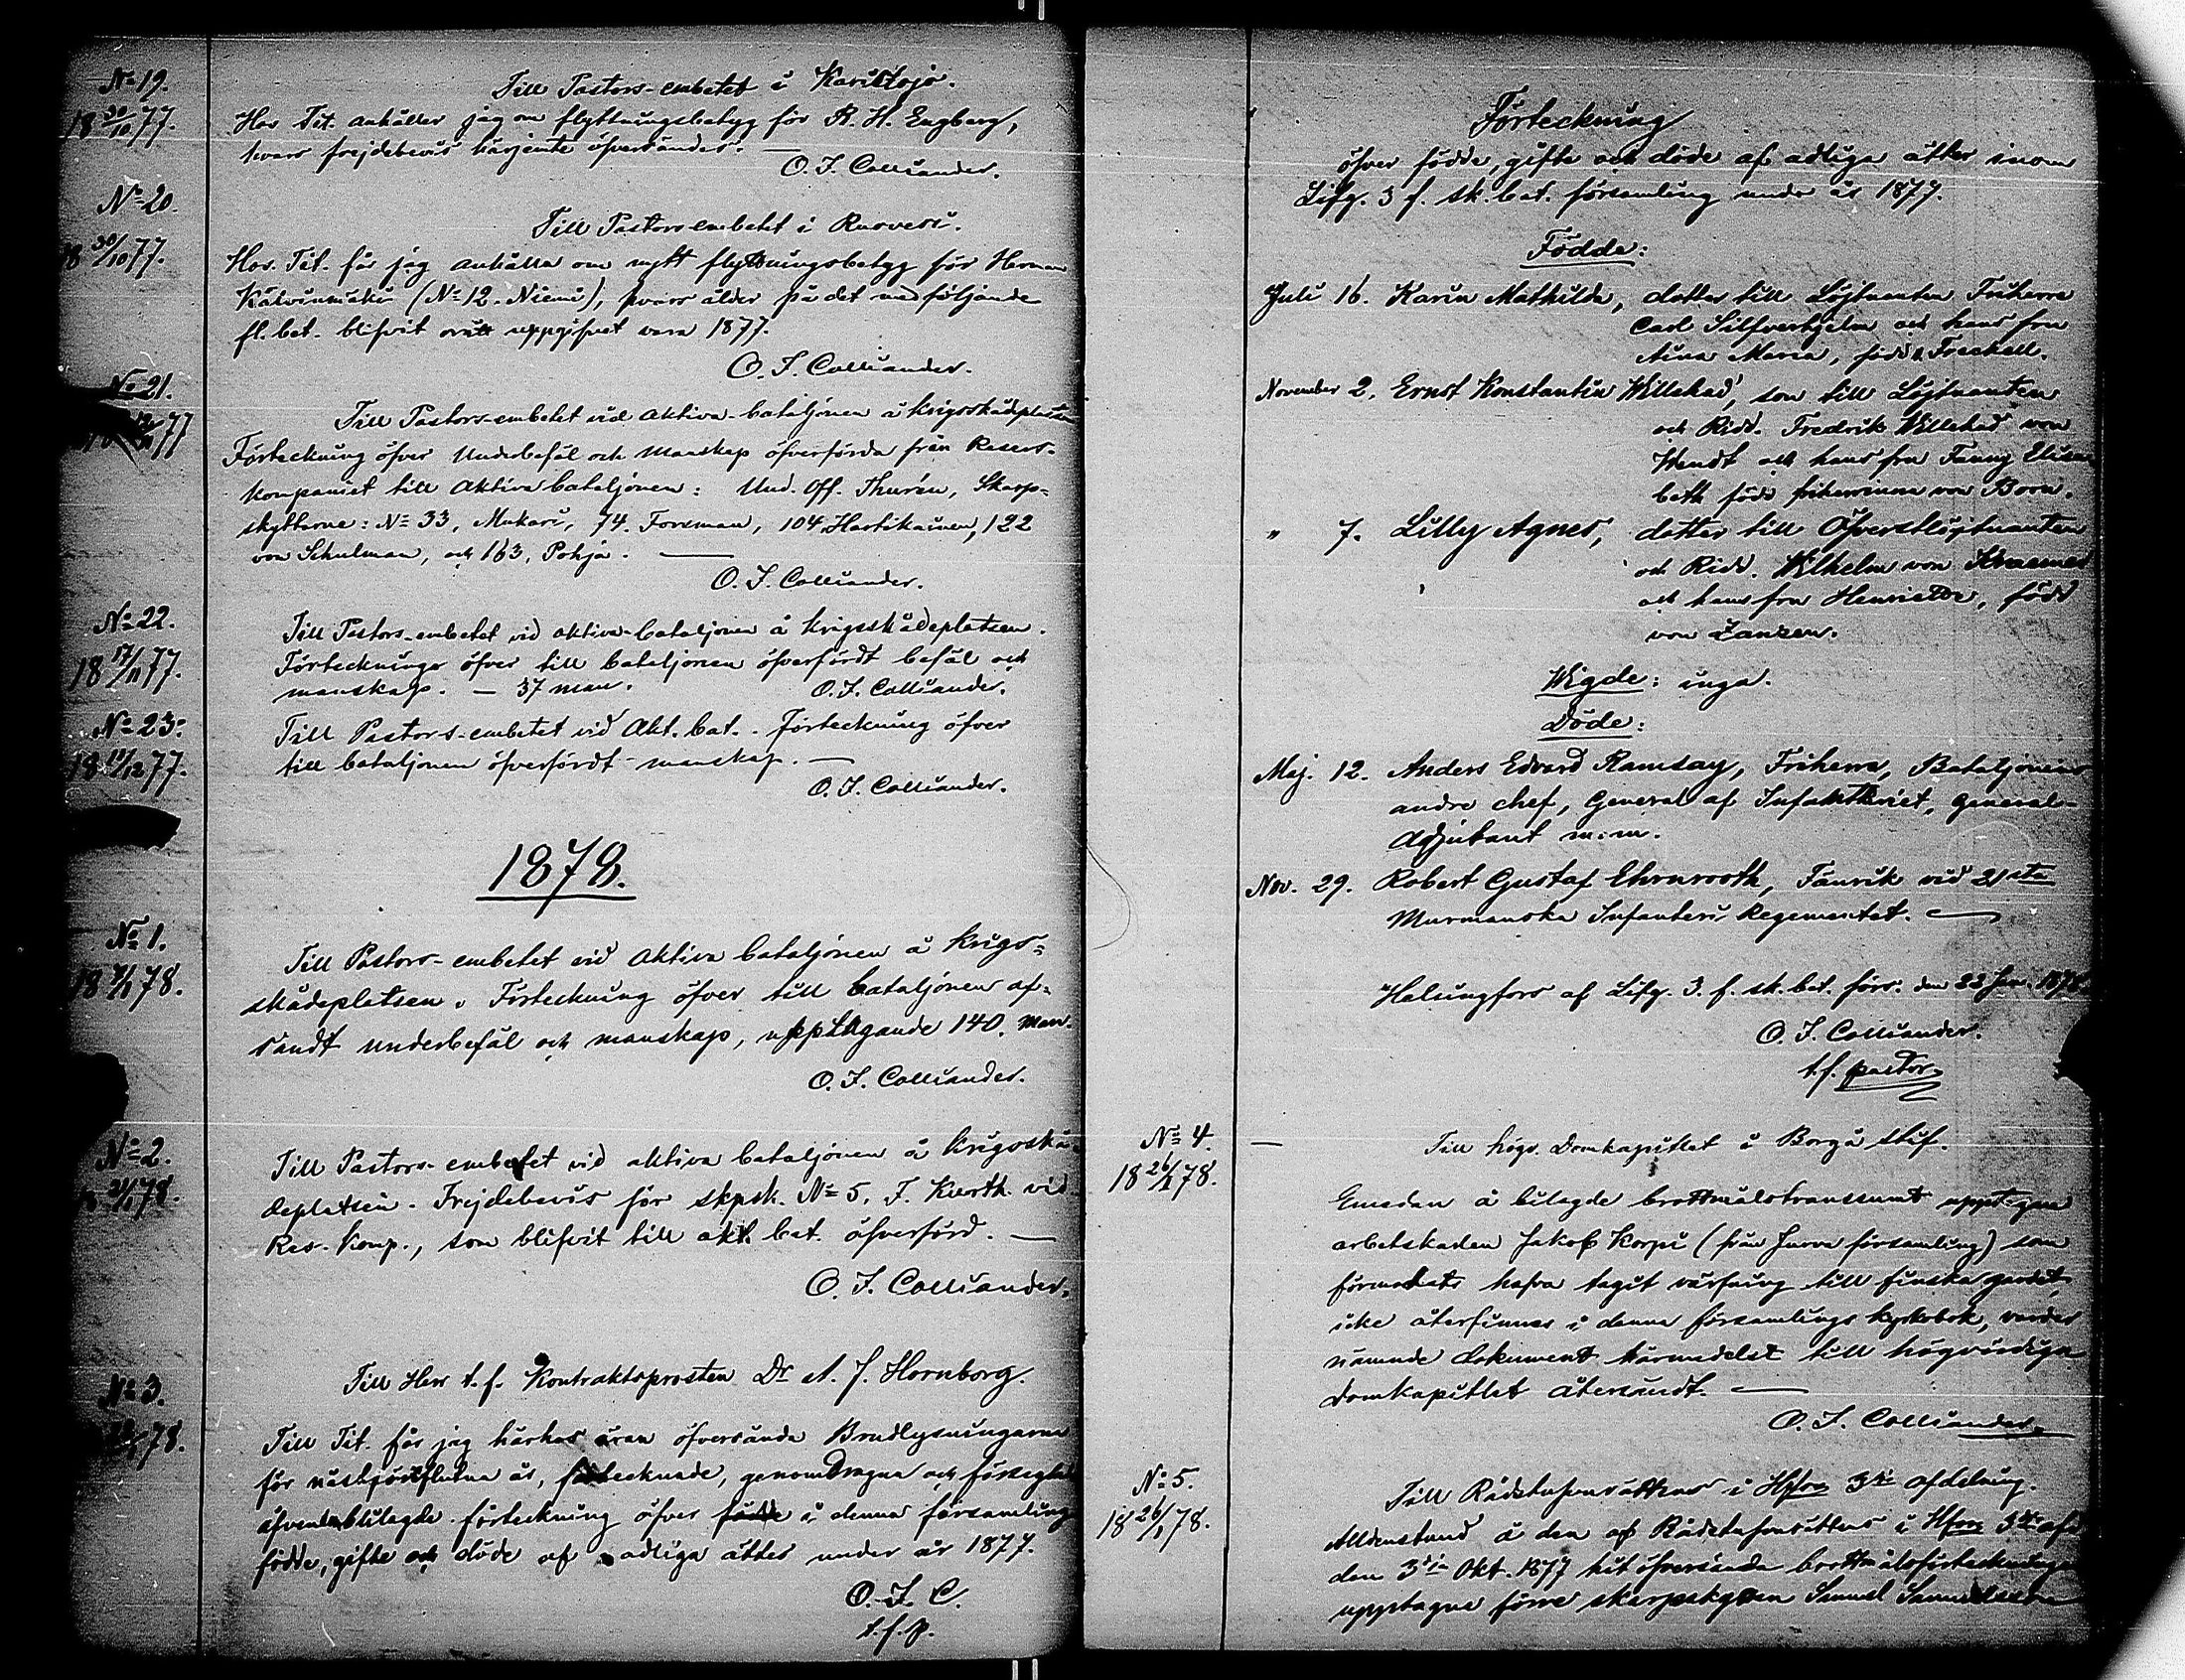 N:o 19.
18 30/10 77.
Till Pastors-embetet i Karislojo.
Hos Tit. anhåller jag om flyttningsbetyg för R. H. Engberg,
hvars frejdebevis härjemte öfversändes. —
O. I. Colliander.
N:o 20.
18 30/10 77.
Till Pastors embetet i Ruovesi.
Hos. Tit. får jag anhålla om nytt flyttningsbetyg för Herman
Kälvinmäki (N:o 12. Niemi), hvars ålder på det medföljande
fl. bet. blifvit orätt uppgifvet vara 1877.
O. I. Colliander.
N:o 21.
77
Till Pastors-embetet vid aktiva-bataljonen å krigsskådeplatsen
Förteckning öfver Underbefäl och Manskap öfverförda från Reserv-
kompaniet till Aktiva bataljonen: Und. Off. Thurén, Skarp-
skyttarne: N:o 33, Mukari, 74. Forsman, 104, Hartikainen, 122
von Schulman, och 163, Pohja. —
O. I. Colliander.
N:o 22.
18 17/11 77.
Till Pastors-embetet vid aktiva-bataljonen å krigsskådeplatsen.
Förteckningar öfver till bataljonen öfverfördt befäl och
manskap. — 37 man.
O. I. Colliander.
N:o 23.
18 11/12 77.
Till Pastors-embetet vid Akt. bat. - Förteckning öfver
till bataljonen öfverfördt manskap. —
O. I. Colliander.
1878.
N:o 1.
78.
Till Pastors-embetet vid aktiva bataljonen å krigs-
skådeplatsen. Förteckning öfver till bataljonen af-
sändt underbefäl och manskap, upptagande 140. man.
O. I. Colliander.
N:o 2.
78.
Till Pastors-embetet vid aktiva bataljonen å krigsskå-
deplatsen. Frejdebevis för skpsk. N:o 5, F. Kurth. vid
Res. komp., som blifvit till akt. bat. öfverförd. —
O. I. Colliander.
N:o 3.
78.
Till Herr t. f. Kontraktsprosten Dr A. J. Hornborg.
Till Tit. får jag härhos äran öfversända Brudlysningarne
för nästförflutna år, förtecknade, genomdragna och förseglade
äfven bilagde förteckning öfver i denna församling
födde, gifte och döde af adliga ätter under år 1877.
O. I. C.
t. f. p.
Förteckning
öfver födde, gifte och döde af adliga ätter inom
Lifg. 3 f. sk. bat. församling under år 1877.
Födde:
Juli 16. Karin Mathilda, dotter till Löjtnanten Friherre
Carl Silfverhjelm och hans fru
Aina Maria, född Frenckell.
November 2. Ernst Konstantin Willehad, son till Löjtnanten
och Ridd. Fredrik Willehad von
Wendt och hans fru Fanny Elisa-
beth född friherrinna von Born.
" 7. Lilly Agnes, dotter till Öfverstlöjtnanten
och Ridd. Wilhelm von Kraemer
och hans fru Henriette, född
von Zansen.
Wigde: inga.
Döde:
Maj. 12. Anders Edvard Ramsay, Friherre, Bataljonens
andre chef, General af Infanteriet, General-
Adjutant m:m.
Nov. 29. Robert Gustaf Ehrnrooth, Fänrik vid 21sta
Murmanska Infanteri Regementet. —
Helsingfors af Lifg. 3. f. sk. bat. förs. den 22 Jan. 1878
O. I. Colliander.
t. f. pastor.
N:o 4.
18 26/1 78.
— Till högv. Domkapitlet i Borgå stift.
Emedan å bilagde brottmålstranssumt upptagne
arbetskarlen Jakob Korpi (från Jurva församling) som
förmodats hafva tagit värfning till finska gardet,
icke återfinnes i denna församlings kyrkobok, varder
nämnde dokument härmedelst till högvördiga
Domkapitlet återsändt. —
O. I. Colliander.
N:o 5.
18 26/1 78.
Till Rådstufvurättens i Hfors 3die afdelning.
Alldenstund å den af Rådstufvurättens i Hfors 3die afd.
den 3die Okt. 1877 hit öfversända brottmålsförteckningen
upptagne förre skarpskytten Samuel